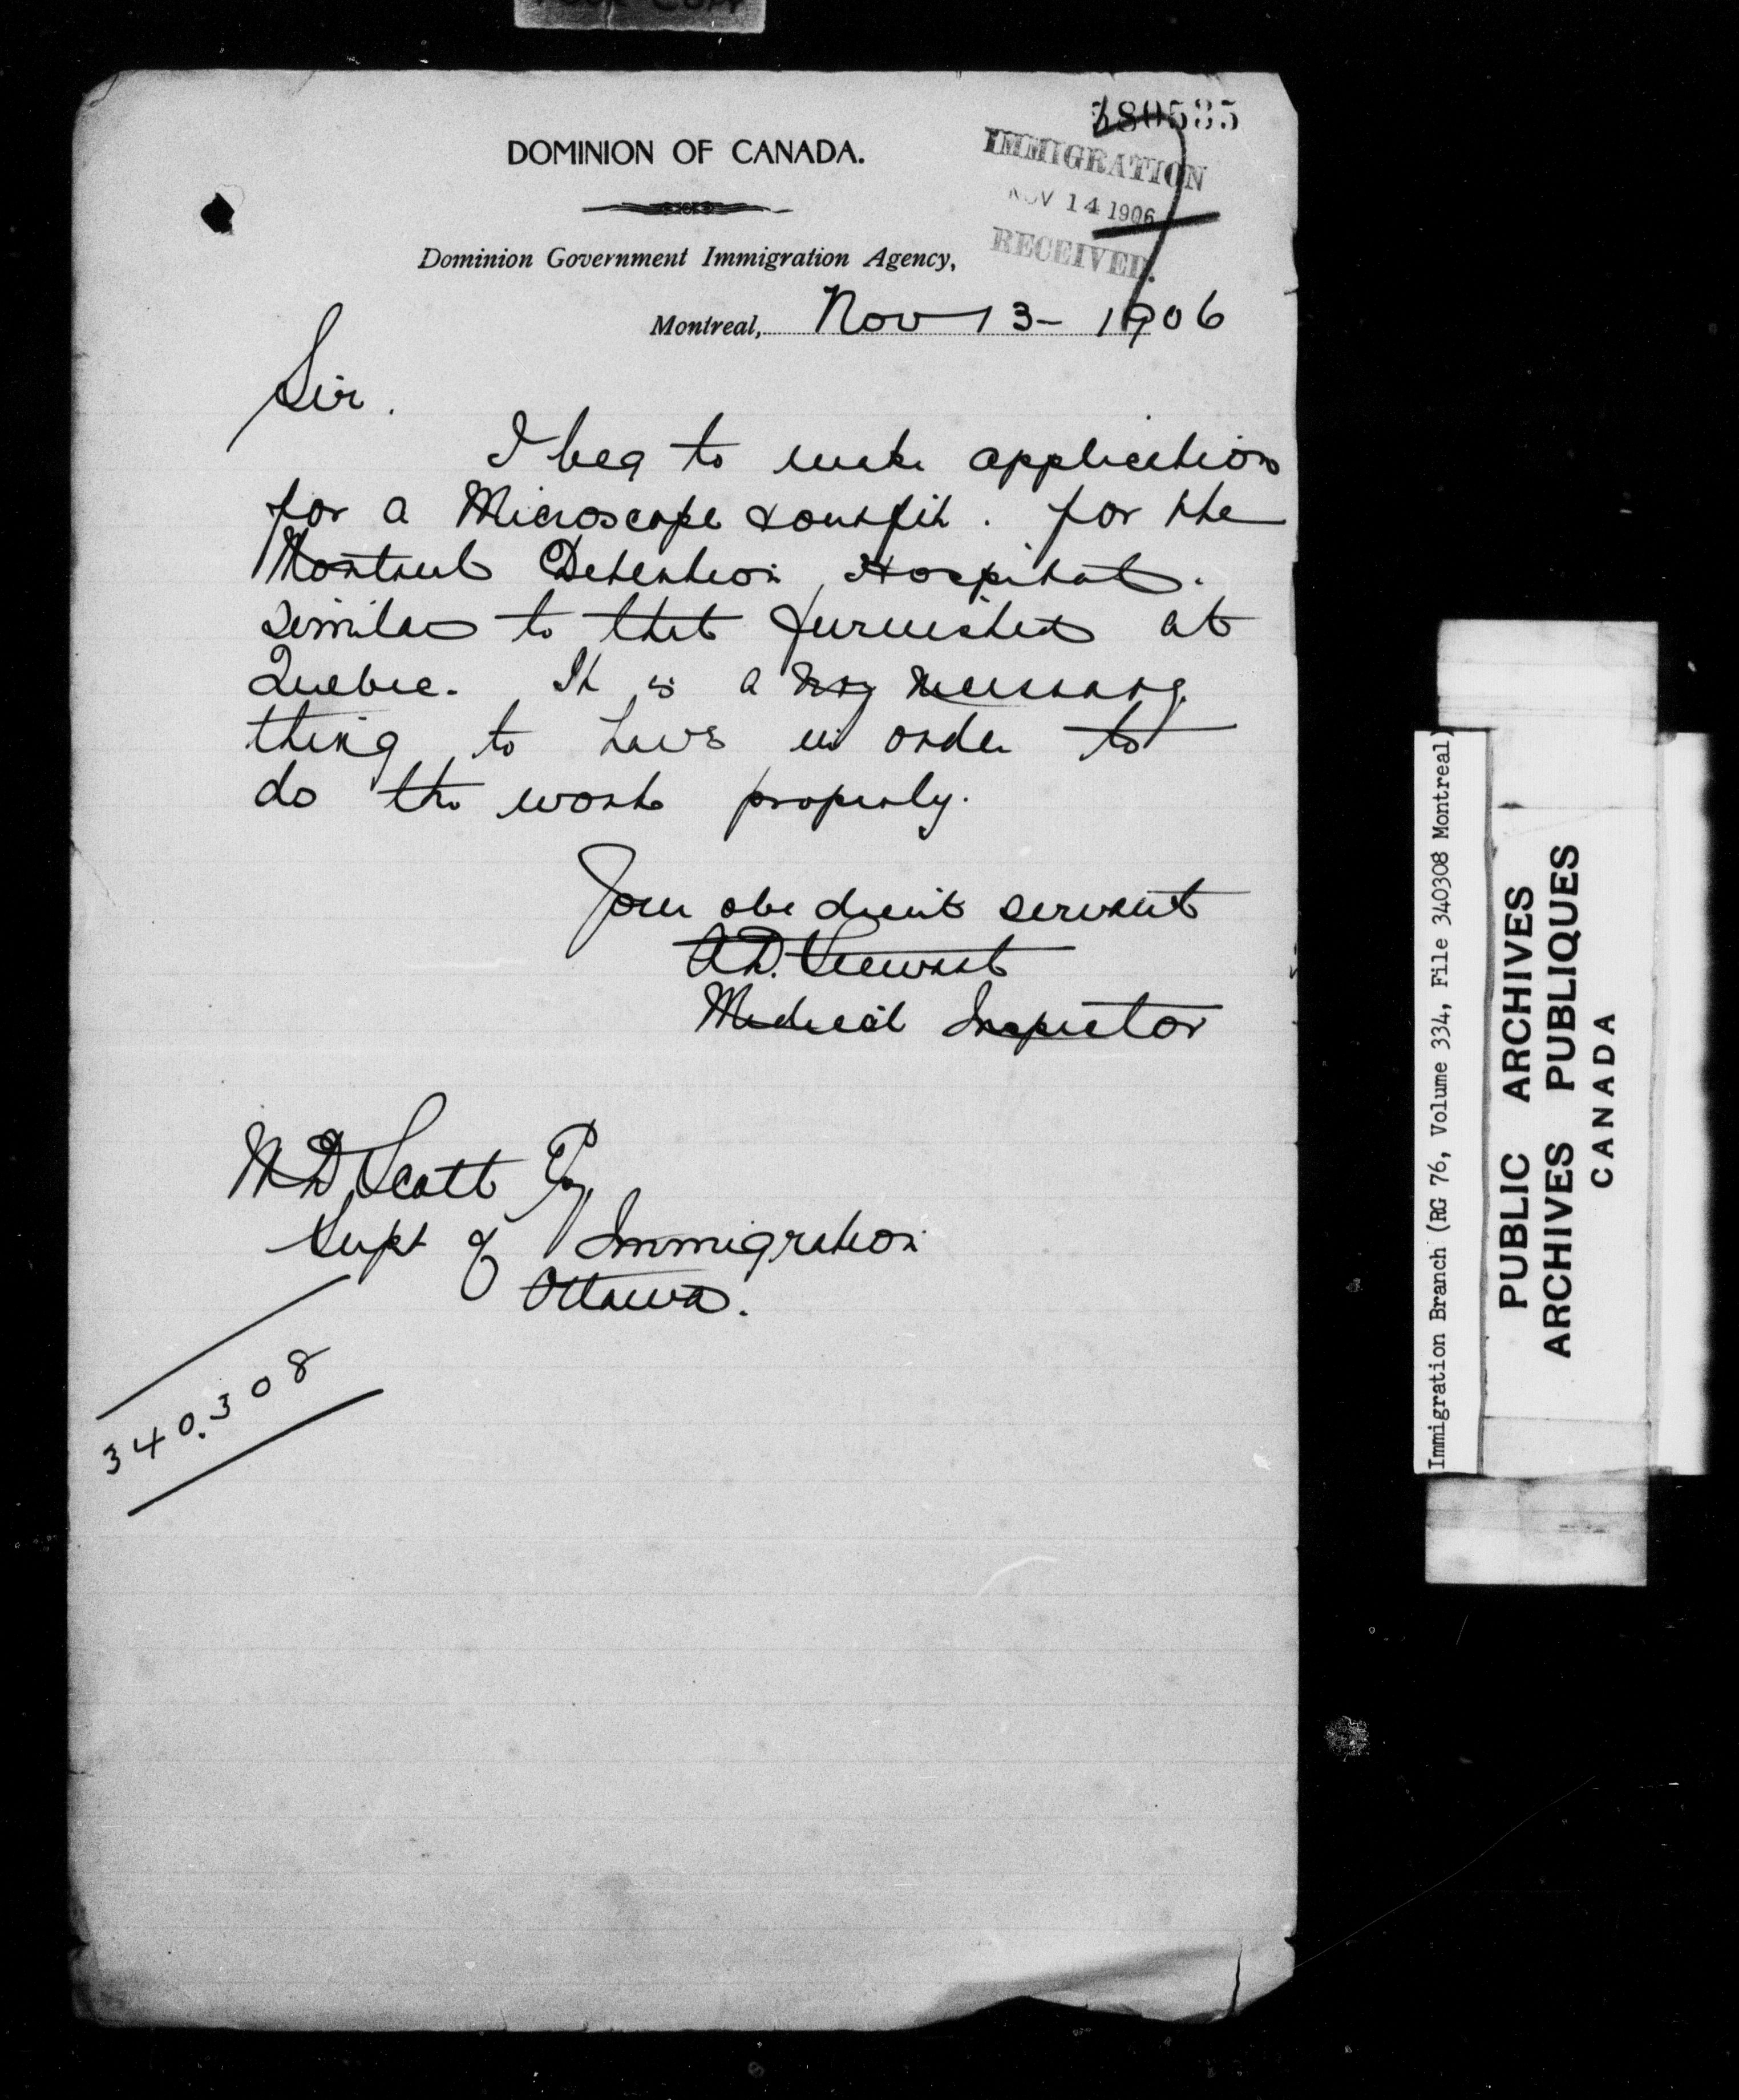 POOR COPY
380535
DOMINION OF CANADA.
IMMIGRATION
NOV 14 1906
RECEIVED.
Dominion Government Immigration Agency,
Montreal, Nov 13 - 1906
Sir.
I beg to make application
for a Microscope & outfit. for the
Montreal Detention Hospital.
similar to that furnished at
Quebec. It is a very necessary
thing to have in order to
do the work properly.
Your obedient servant
A.D. Stewart
Medical Inspector
W D Scott Esq
Supt of Immigration
Ottawa.
340.308
Immigration Branch (RG 76, Volume 334, File 340308 Montreal)
PUBLIC ARCHIVES
ARCHIVES PUBLIQUES
CANADA